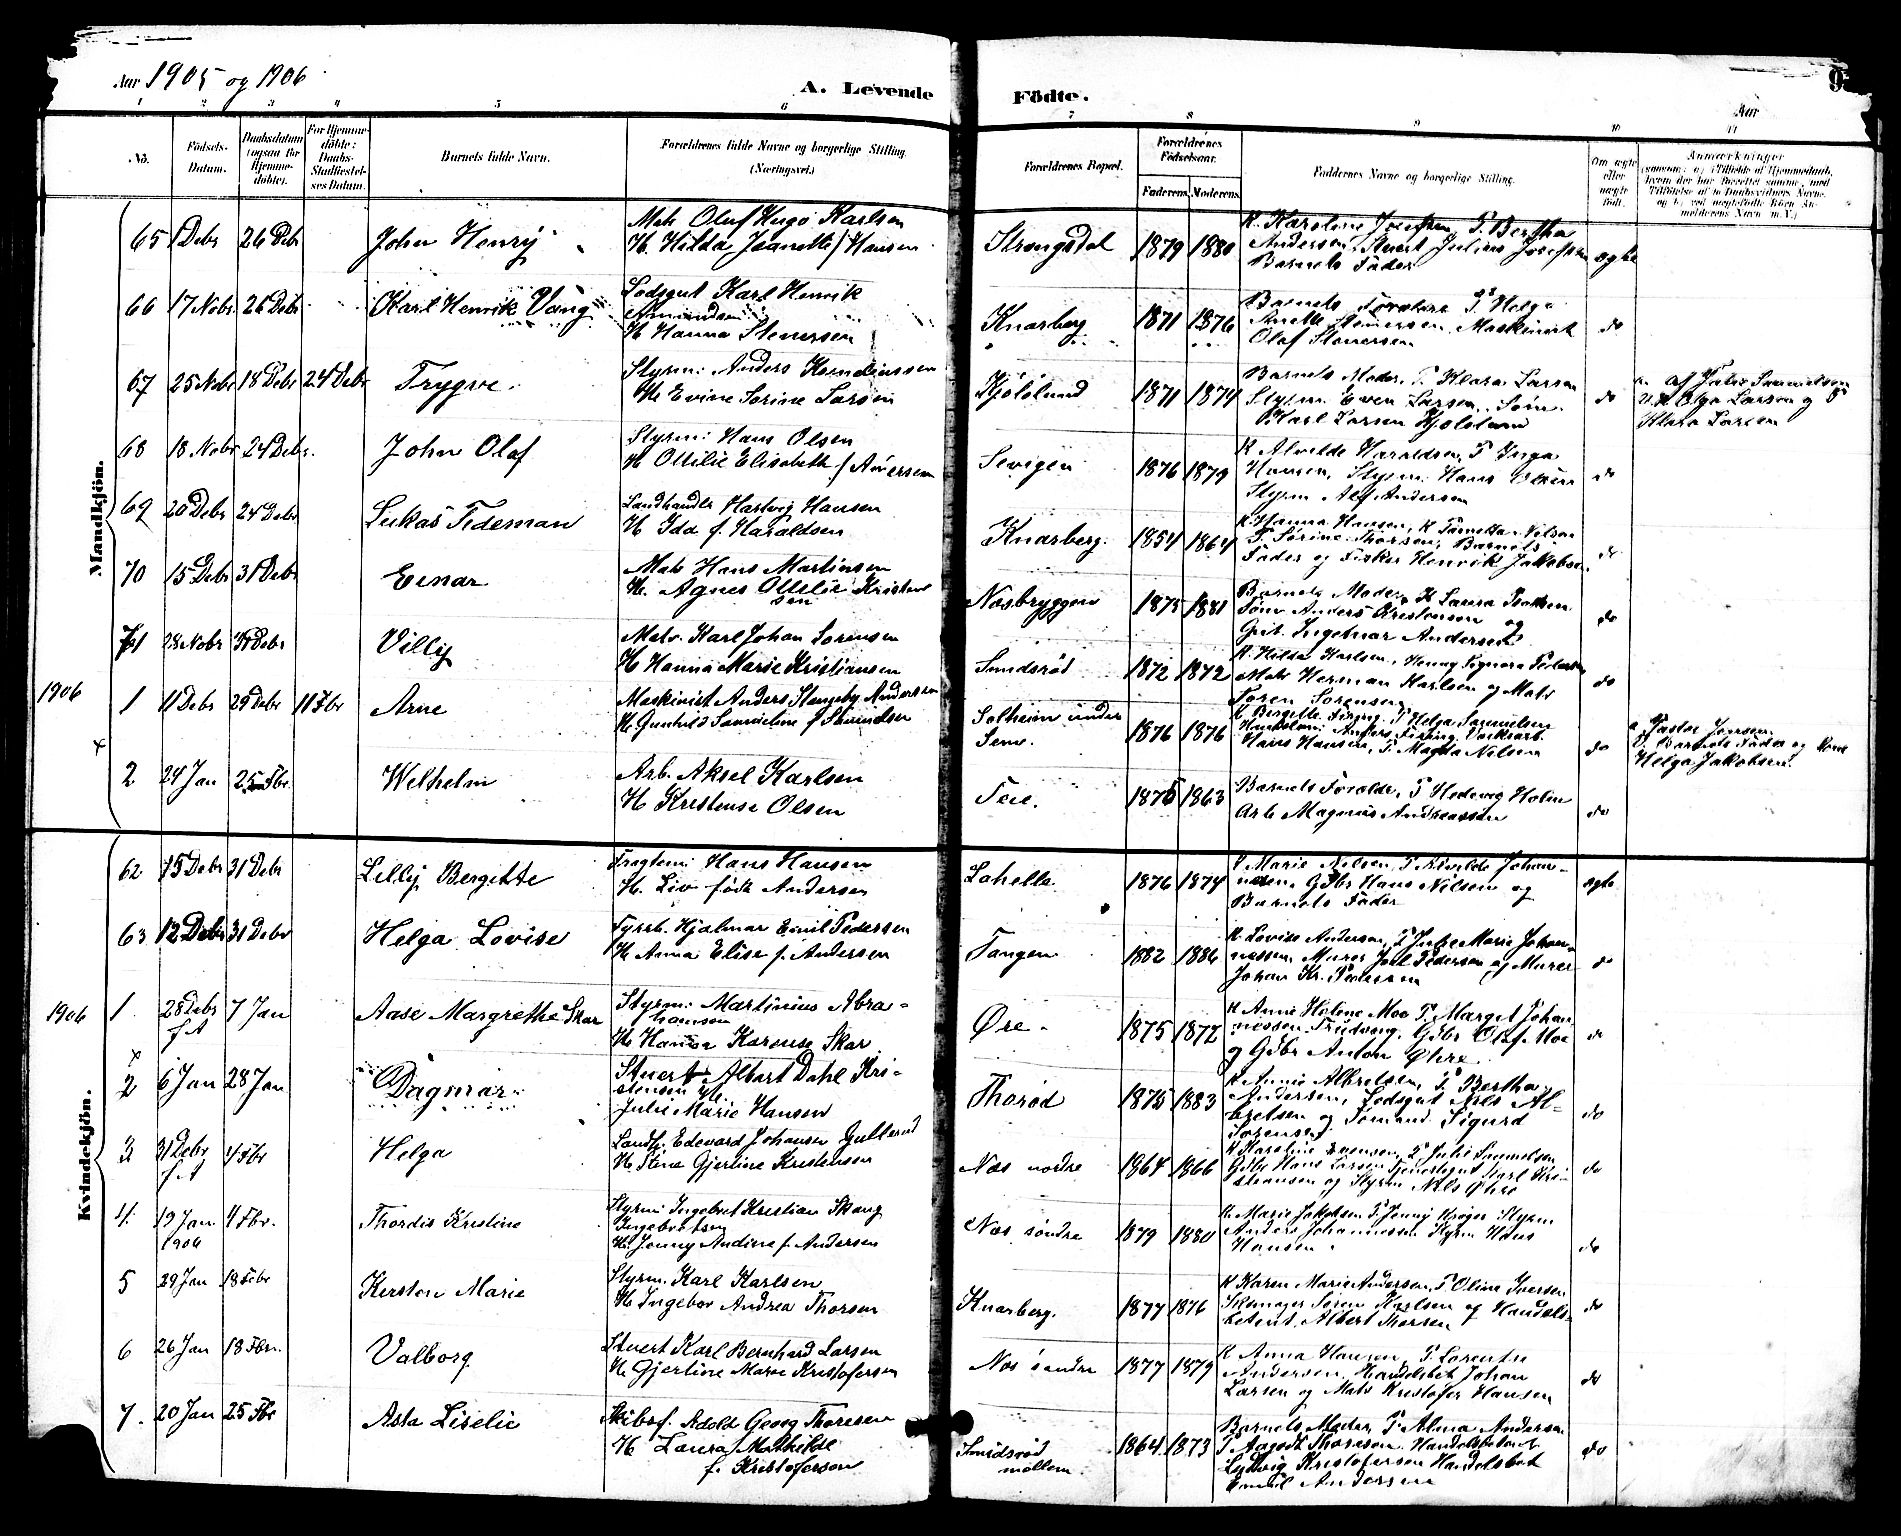 Aar 1905 og 1906
A. Levende Födte.
Aar
9
1 2 3 4 5 6 7 8 9 10 11
No. Födsels-Datum. Daabsdatum (ogsaa for Hjemmedöbte). For Hjemmedöbte: Daabs-Stadfæstelses Datum. Barnets fulde Navn. Forældrenes fulde Navne og borgerlige Stilling. (Næringsvei.) Forældrenes Bopæl. Forældrenes Födselsaar. Faderens. Moderens. Faddernes Navne og borgerlige Stilling. Om ægte eller uægte födt. Anmærkninger
Mandkjön.
65 1 Debr 26 Debr John Henry Matr Oluf Hugo Karlsen
H. Hilda Jeanette f Hansen Strengsdal 1879 1880 K. Karoline Josefsen, P. Bertha
Andersen, Stuert Julius Josefsen
Barnets Fader ægte
66 17 Nobr 26 Debr Karl Henrik Vang Lodsgut Karl Henrik
Amundsen
H. Hanna Stenersen Knarberg 1871 1876 Barnets Forældre P. Helga
Anette Stenersen, Maskinist
Olaf Stenersen do
67 25 Nobr 18 Debr 24 Debr Trygve Styrm: Anders Korneliussen
H. Evine Sorine Larsen Kjølslund 1871 1874 Barnets Moder, P. Klara Larsen
Styrm Even Larsen, Søm.
Karl Larsen Kjølslund do
Olga Larsen og
Klara Larsen
68 18 Nobr 24 Debr. John Olaf Styrm: Hans Olsen
H Ottilie Elisabeth f Andersen 1876 1879 K Alvilde Haraldsen, P Inga
Hansen, Styrm. Hans
Styrm Alf Andersen do
69 20 Debr 24 Debr Lukas Tedeman Landhandler Hartvig Hansen
H Ida f. Haraldsen Knarberg. 1854 1864 K. Hanna Hansen, K Nilsen
P. Sorine Thorsen, Barnets
Fader og Fisker Henrik Jakobsen do
70 15 Debr 31 Debr Einar Matr Hans Martinsen
H. Agnes Ottilie Kristen
sen Nesbryggen 1875 1881 Barnets Moder, K Laura
Søm Anders Kristensen og
Ingelmar Andersen do
71 28 Nobr 31 Debr Villy Matr. Karl Johan Sorensen
H Hanna Marie Kristiansen Smidsrød 1872 1872 K. Hilda Karlsen, Henny Signora Pedersen
Matr Herman Karlsen og Matr
Søren Sorensen do
1906
1 11 Debr 29 Debr 11 Fbr Arne Maskinist Anders Stangeby Andersen
H. Gunhild Samueline f Svendsen Solheim under
Seme. 1876 1876 K Bergette P Helga Samuelsen
Anders
Hans Hansen, P. Magda Nilsen do
Pastor Jonssen
Barnets Fader og
Helga Jakobsen
2 24 Jan 25 Fbr Welhelm Arb. Aksel Karlsen
H Kristense Olsen Teie. 1875 1863 Barnets Forældre, P Hedevig Holm
Arb Magnus Andreassen do
Kvindekjön.
62 15 Debr 31 Debr Lilly Bergitte Hans Hansen
H. Liv født Andersen 1876 1874 K Marie Nilsen P. Alvilde Johan-
nesen, Gdbr Hans Nilsen og
Barnets Fader ægte
63 12 Debr 31 Debr Helga Lovise Fyrb. Hjalmar Emil Pedersen
H Anna Elise f. Andersen Tangen 1882 1886 K. Lovise Andersen, P Julie Marie Johan-
nessen, Murer Joel Pedersen og Murer
Johan Kr. Pedersen do
1906
1 28 Debr
f. A 7 Jan Aase Margrethe Skar Styrm: Martinius Abra-
hamsen
H Hanna Karense Skar Øre 1875 1872 K Anne Helene Moe P. Margit Johan
nessen, Gdbr Olaf Moe
og Gdbr Anton Øhre do
2 6 Jan 28 Jan Dagmar Stuert Albert Dahl Kri-
stensen H
Julie Marie Hansen Thorød 1875 1883 K Annie Albretsen, P Bertha
Andersen, Lodsgut Nils Al-
bretsen og Sømand Sigurd
Sorensen do
3 31 Debr
f. A 4 Fbr Helga Landh. Edevard Johansen Gulterud
H Stine Gjertine Kristensen Næs nordre 1864 1866 K Karoline Evensen, P Julie Samuelsen
Gdbr Hans Larsen, Karl Kri-
stiansen og Styrm Nils Øhre do
4. 19 Jan
1906 4 Fbr. Thordis Kristine Styrm: Ingebret Kristian Skaug
Ingebretsen
H. Jenny Andine f. Andersen Næs søndre 1879 1880 K Marie Jakobsen P. Jenny Krøger Styrm
Anders Johannessen Styrm Hans
Hansen do
5 29 Jan 18 Febr Kersten Marie Styrm. Karl Karlsen
H Ingebor Andrea Thorsen Knarberg. 1877 1876 K Karen Marie Andersen, P Oline Iversen
Søren Karlsen og Handels-
betjent Albert Thorsen do
6 26 Jan 18 Fbr. Valborg Stuert Karl Bernhard Larsen
H. Gjertine Marie Kristofersen Næs søndre 1877 1879 K Anna Hansen P. Lorentse
Andersen, Handelsbet Johan
Larsen og Matr Kristofer Hansen do
7. 20 Jan 25 Fbr Asta Liselie Skibsf. Adolf Georg Thoresen
H Laura Mathilde
f. Kristofersen Smidsrød
møllem. 1864 1873 Barnets Moder, P. Alma Andersen
P Aagot Thoresen, Handelsbetjent
Ludvig Kristofersen Handelsbet
Emil Andersen do